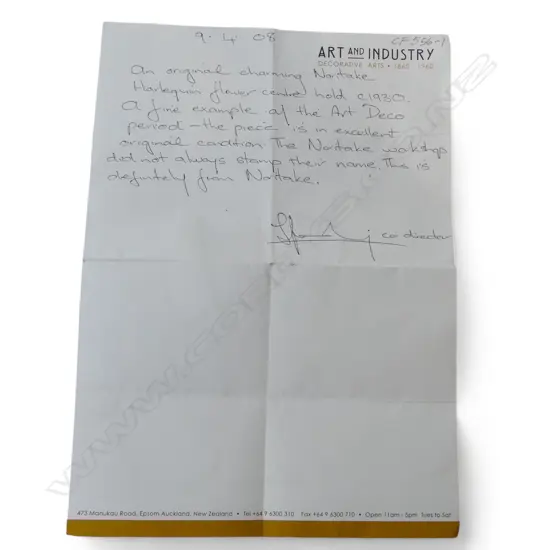 9. 4 08
CF556-1
ART AND INDUSTRY
DECORATIVE ARTS • 1860 1960
An original charming Noritake
Harlequin flower centre hold c1930.
A fine example of the Art Deco
period - the piece is in excellent
original condition. The Noritake workshop
did not always stamp their name. This is
definitely from Noritake.
co director
473 Manukau Road, Epsom Auckland, New Zealand • Tel +64 9 6300 310 Fax +64 9 6300 710 • Open 11am - 5pm Tues to Sat